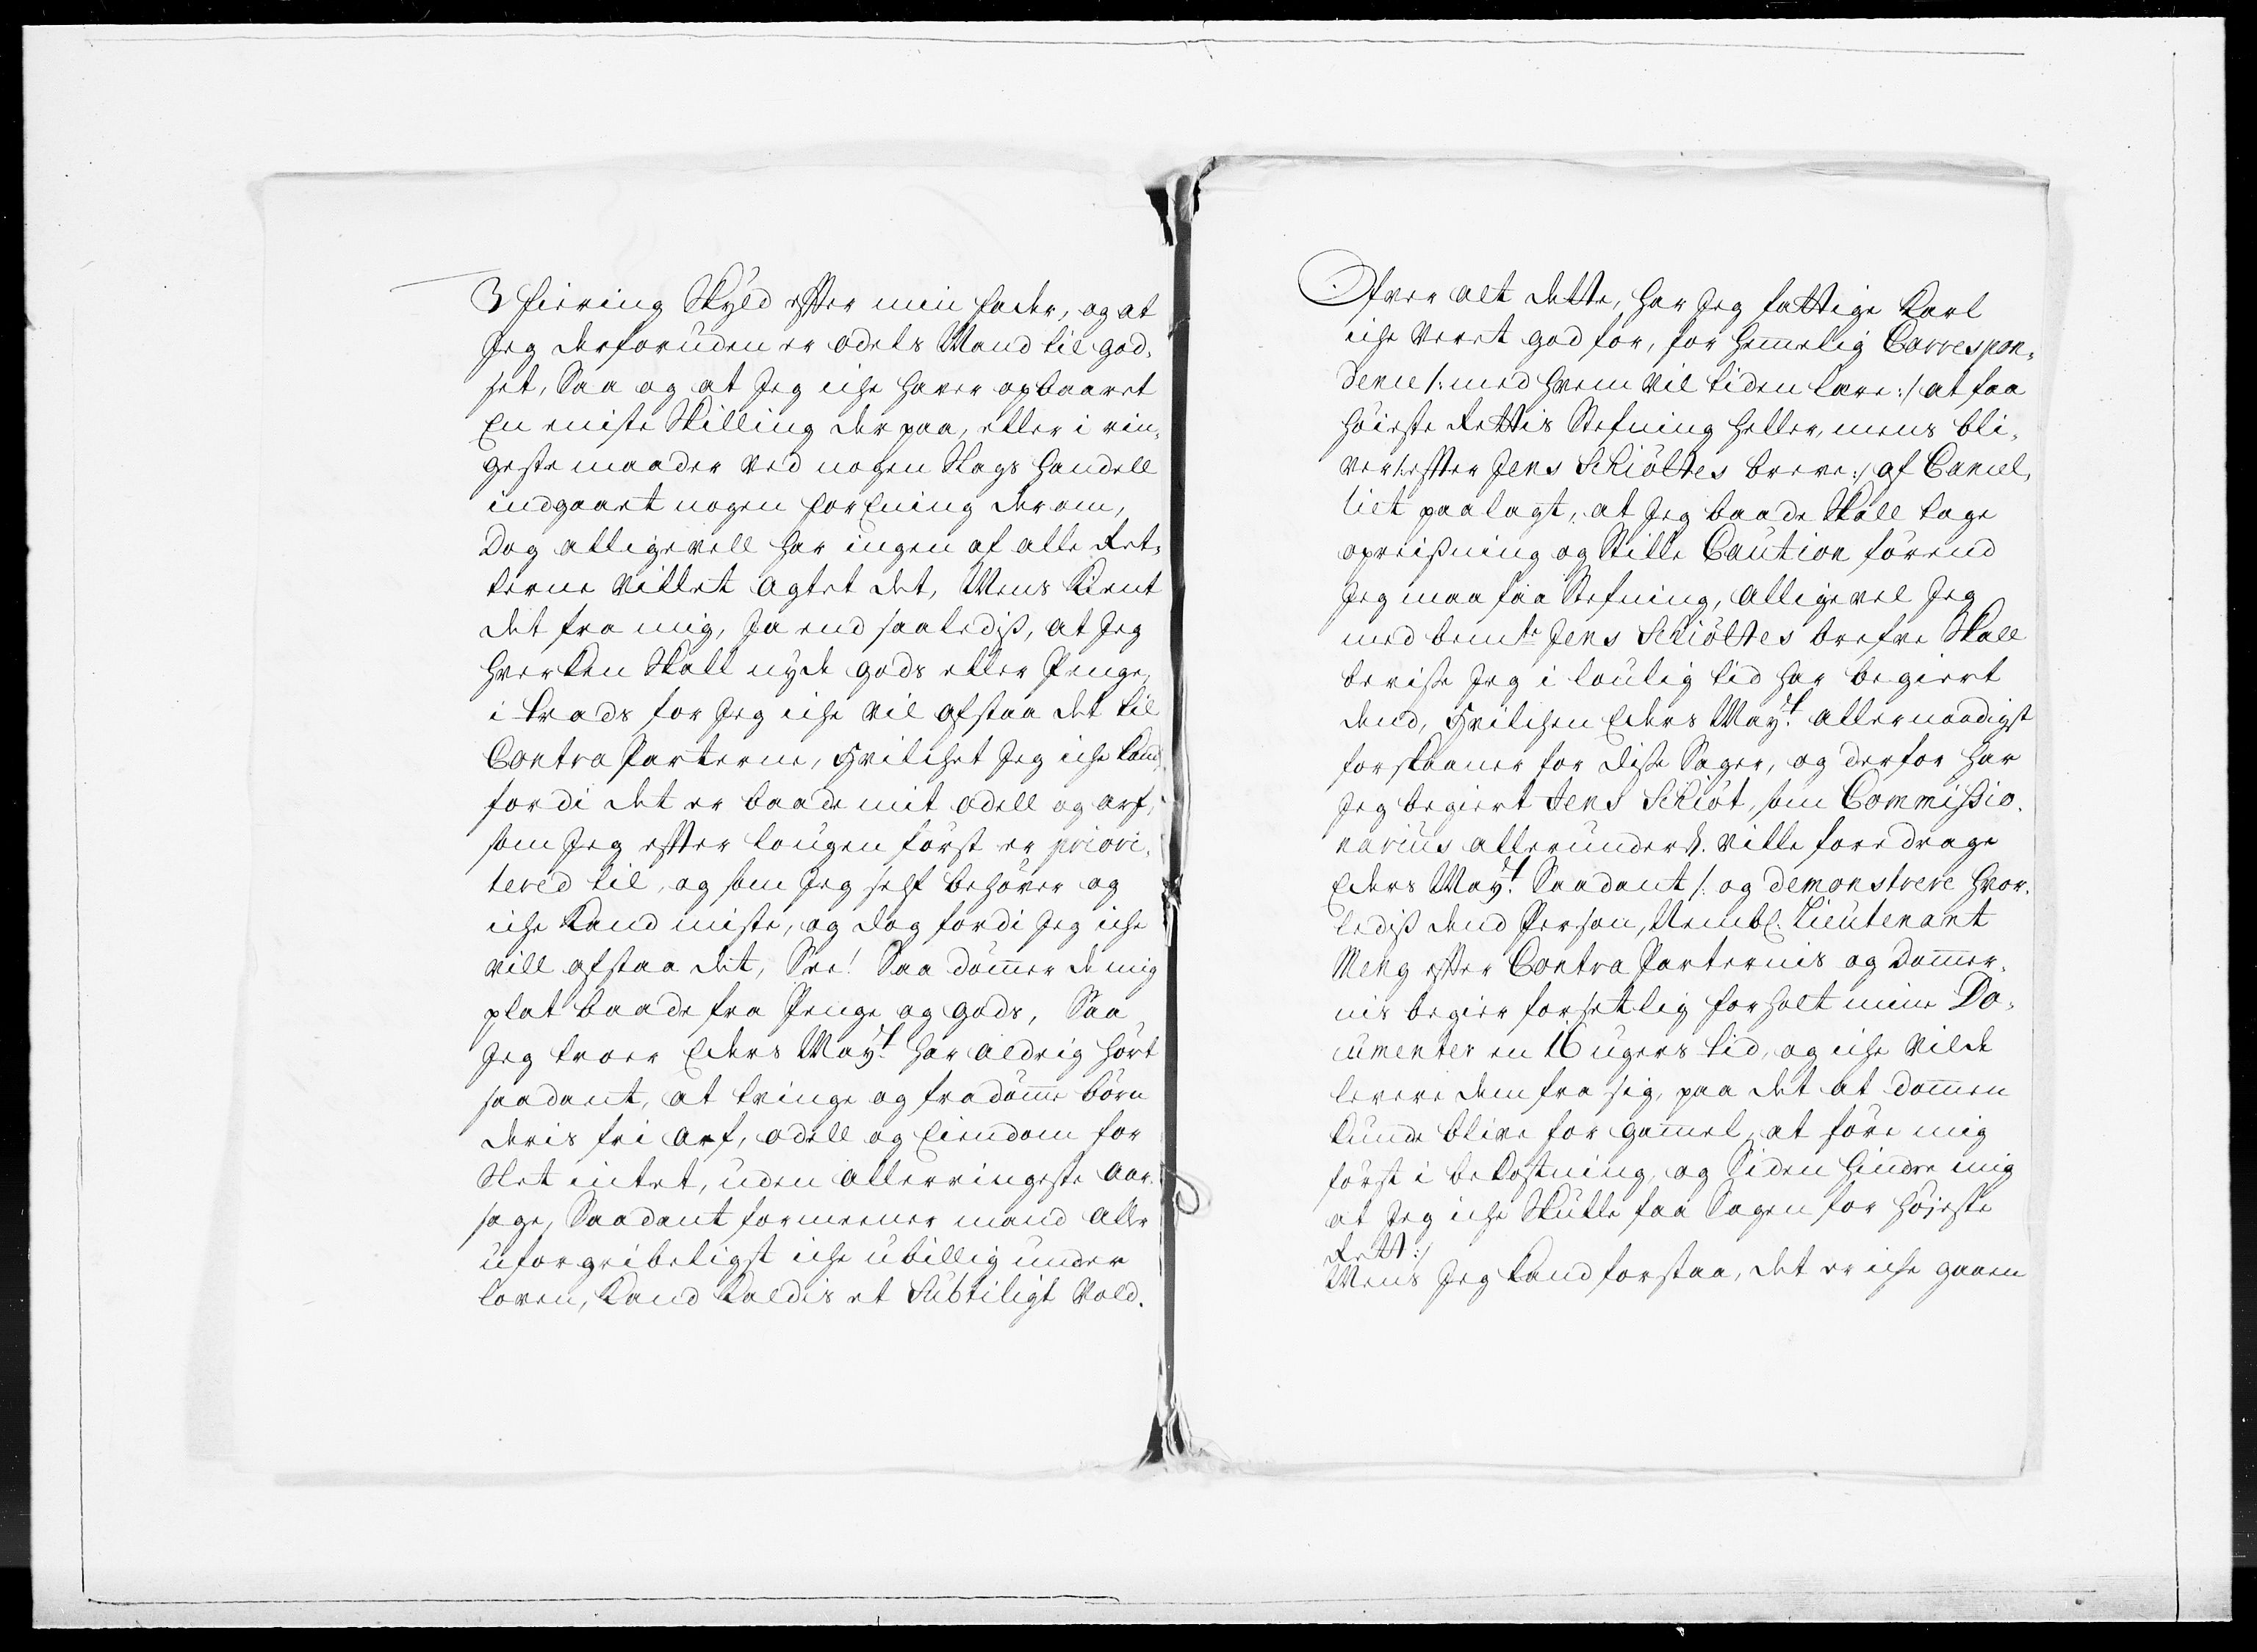 3 fiering Skyld effter min fader, og at
Jeg derforuden er odels Mand til god¬
set, Saa og at Jeg iche haver opbaaret
En eniste Skilling der paa, eller i rin¬
geste maader ved nogen Slags handell
indgaart nogen forEning der om,
Dog alligevell har ingen af alle Ret¬
terne villet agtet det, Mens kient
det fra mig, Ja end saaledis, at Jeg
hverken Skall nyde gods eller Penge,
i trads for Jeg iche vil afstaa det til
Contra Parterne, hvilchet Jeg iche kand,
fordi det er baade mit odell og arf,
som Jeg effter lougen först er priori¬
tered til, og som Jeg self behöver og
iche kand miste, og dog fordi Jeg iche
vill afstaa det, See! Saa dömmer de mig
plat baade fra Penge og gods, Saa
Jeg troer Eders May:t har aldrig hört
saadant, at tvinge og fradömme börn
deris fri arf, odell og Eiendom for
Slet intet, uden allerringeste aar¬
sage, Saadant formeener mand aller
uforgribeligst iche ubillig under
loven, kand kaldis et Subtiligt Vold.
Ofver alt dette, har Jeg fattige karl
iche veret god for, for hemmelig Correspon¬
dence /: med hvem vil tiden lære :/ at faa
höieste Rettis Stefning heller, mens bli¬
ver /: effter Jens Schiöttes breve :/ af Cancel¬
liet paalagt, at Jeg baade Skall tage
opreisning og Stille Caution förend
Jeg maa faa Stefning, alligevel Jeg
med bem:te Jens Schiöttes brefve Skall
bevise Jeg i loulig tid har begiert
dend, hvilchen Eders May:t allernaadigst
forskaaner for dise Sager, og derfor har
Jeg begiert Jens Schiöt, som Commissio¬
narius allerunderd. ville foredrage
Eders May:t Saadant /: og demonstrere hvor¬
ledis dend Person, Nembl. Lieutenant
Meng effter Contra Parternis og Dommer¬
nis begier forsetlig forholt mine Do¬
cumenter en 16 ugers tid, og iche vilde
levere dem fra sig, paa det at dommen
kunde blive for gammel, at före mig
först i bekostning, og Siden hindre mig
at Jeg iche Skulle faa Sagen for höjeste
Rett :/
Mens Jeg kand forstaa, det er iche gaaen